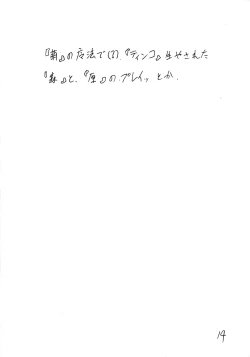 『菊』の魔法で(?)、『ティンコ』生やされた
『森』と、『厘』の、プレイッ とか.
14